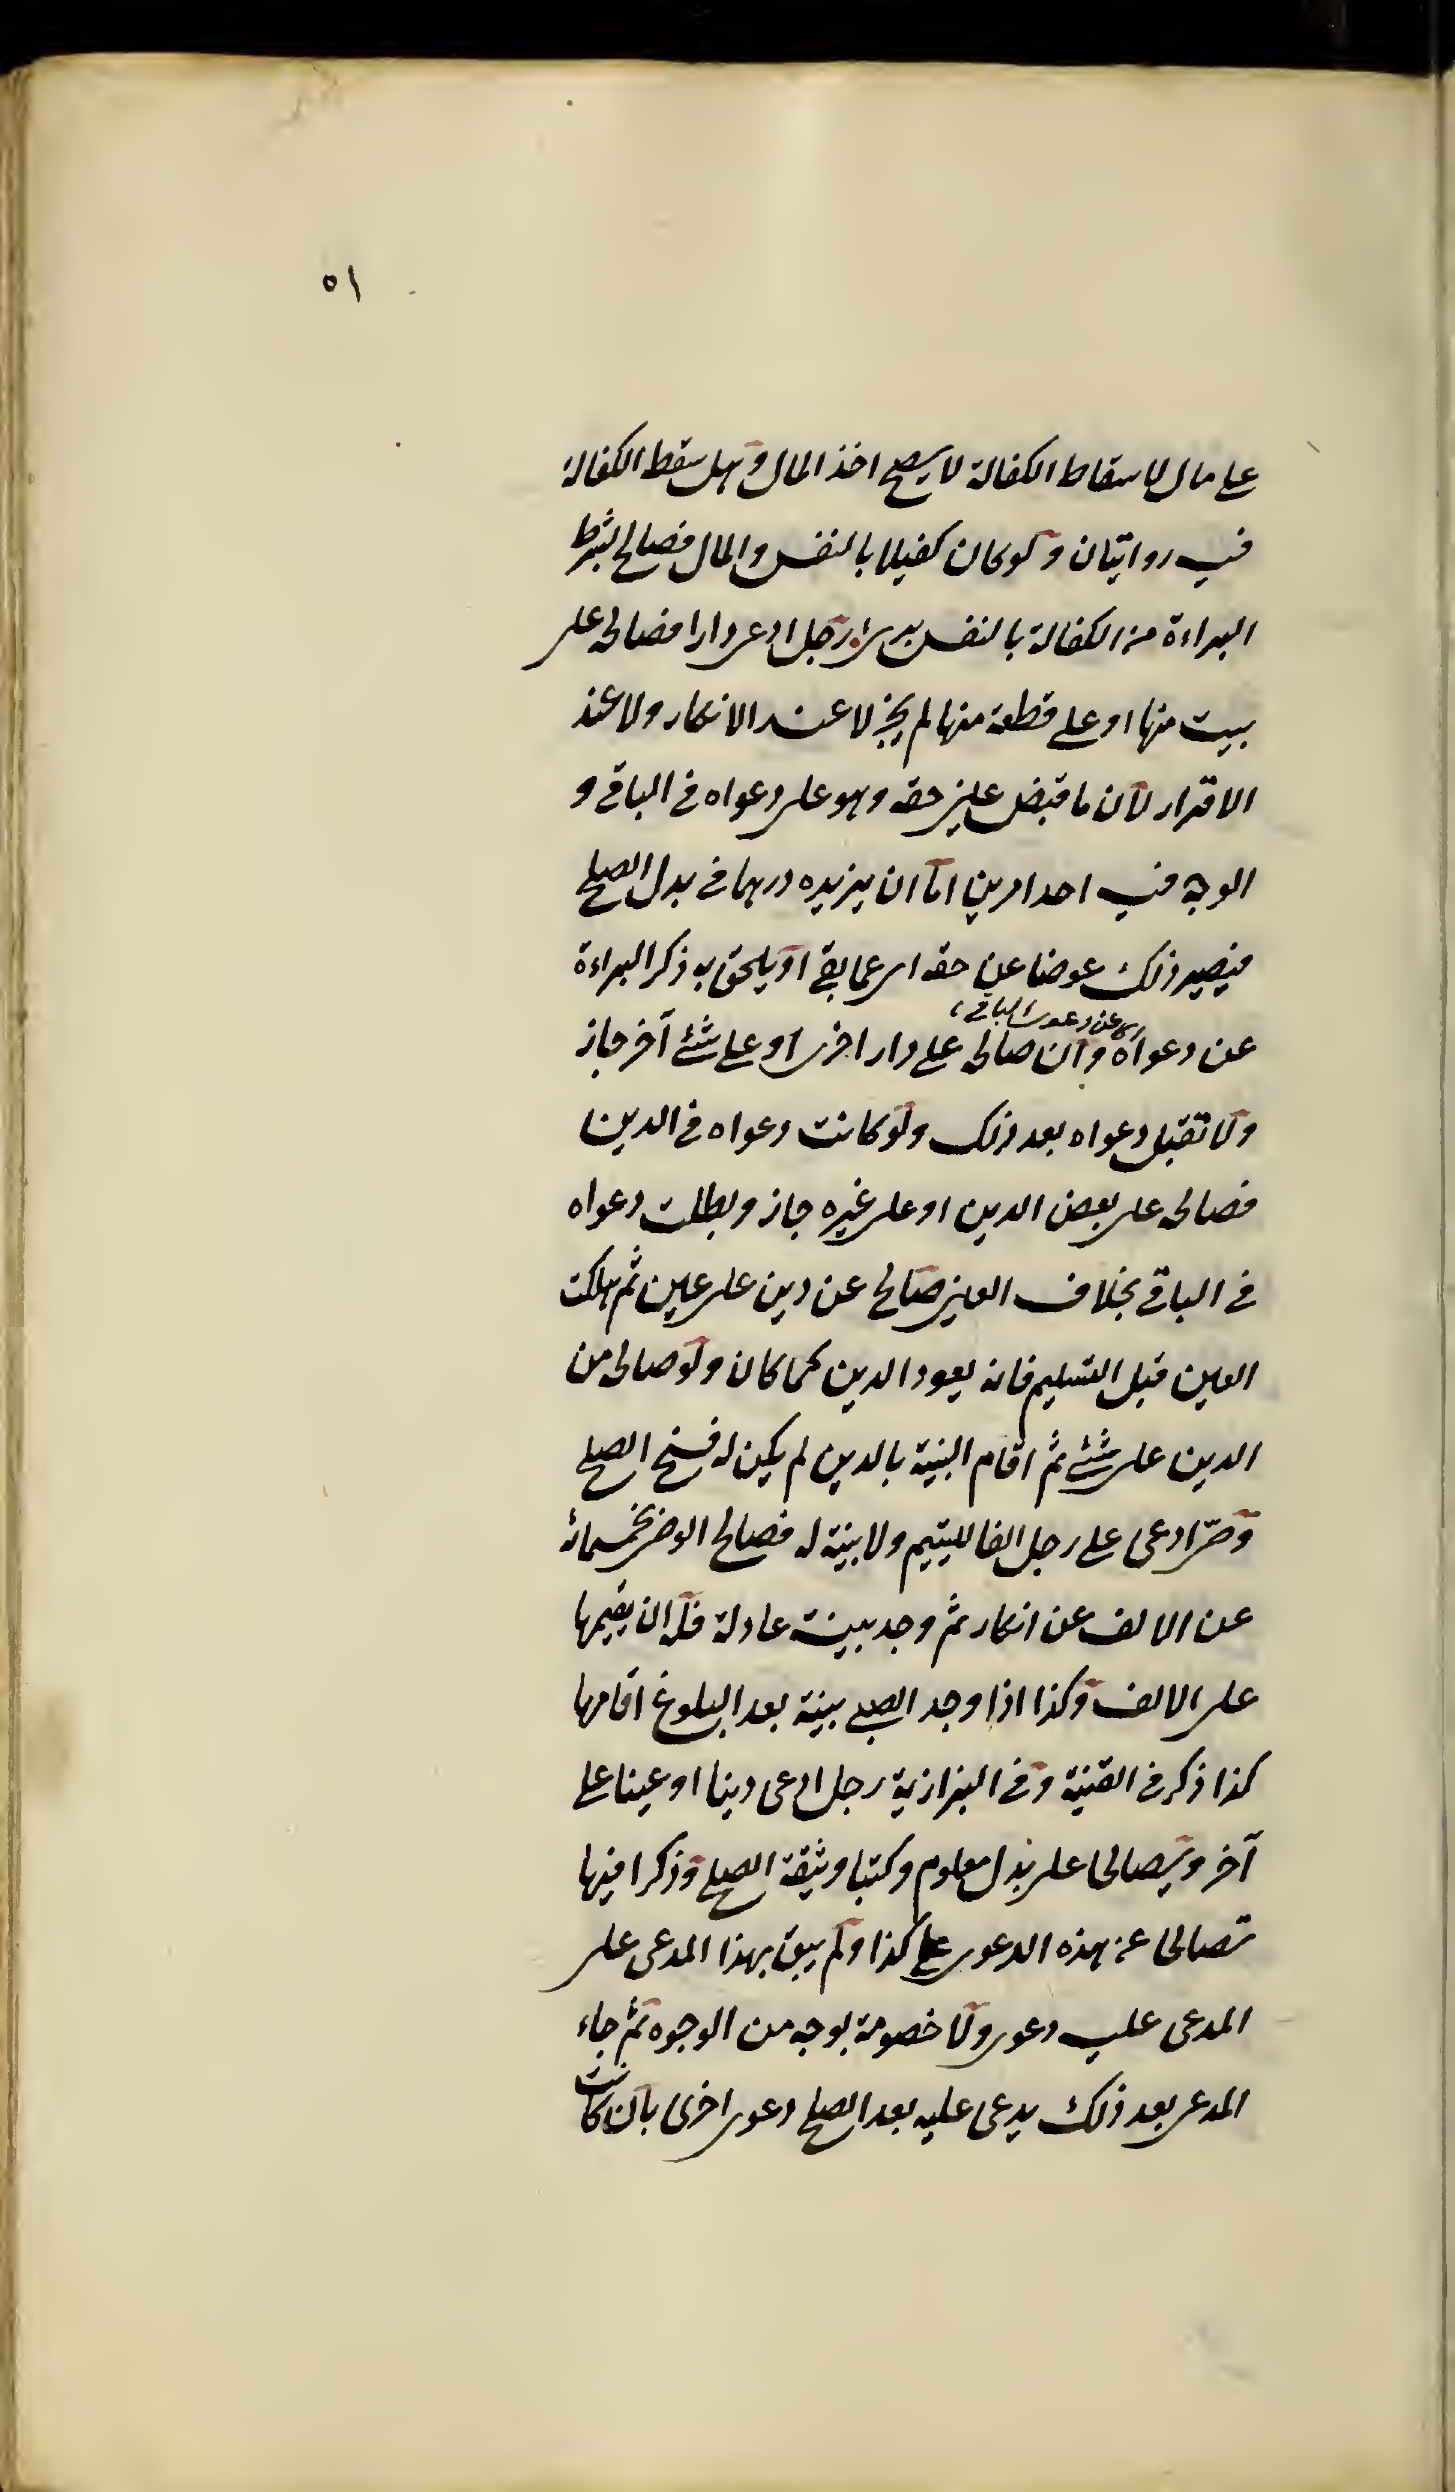 ٥١
على مال لاسقاط الكفالة لا يصح اخذ المال وهل سقط الكفالة
فيه روايتان ولو كان كفيلا بالنفس والمال فصالح بشرط
البراءة من الكفالة بالنفس برئ رجل ادعى دارا فصالحه على
بيت منها او على قطعة منها لم يجز لا عند الانكار ولا عند
الاقرار لان ما قبض عين حقه وهو على دعواه في الباقي و
الوجه فيه احد امرين اما ان يزيده درهما في بدل الصلح
فيصير ذلك عوضا عن حقه اى عما بقي او يلحق به ذكر البراءة
اى عن دعوى الباقي
عن دعواه وان صالحه على دار اخرى او على شئ آخر جاز
ولا تقبل دعواه بعد ذلك ولو كانت دعواه في الدين
فصالحه على بعض الدين او على غيره جاز وبطلت دعواه
في الباقي بخلاف العين صالح عن دين على عين ثم هلكت
العين قبل التسليم فانه يعود الدين كما كان ولو صالحه من
الدين على شئ ثم اقام البينة بالدين لم يكن له فسخ الصلح
وصى ادعى على رجل الفا لليتيم ولا بينة له فصالح الوصى بخمسمائة
عن الالف عن انكار ثم وجد بينة عادلة فله ان يقيمها
على الالف وكذا اذا وجد الصبى بينة بعد البلوغ اقامها
كذا ذكر في القنية وفي البزازية رجل ادعى دينا او عينا على
آخر وتصالحا على بدل معلوم وكتبا وثيقة الصلح وذكرا فيها
تصالحا عن هذه الدعوى على كذا ولم يبق لهذا المدعى على
المدعى عليه دعوى ولا خصومة بوجه من الوجوه ثم جاء
المدعى بعد ذلك يدعى عليه بعد الصلح دعوى اخرى بان كانت